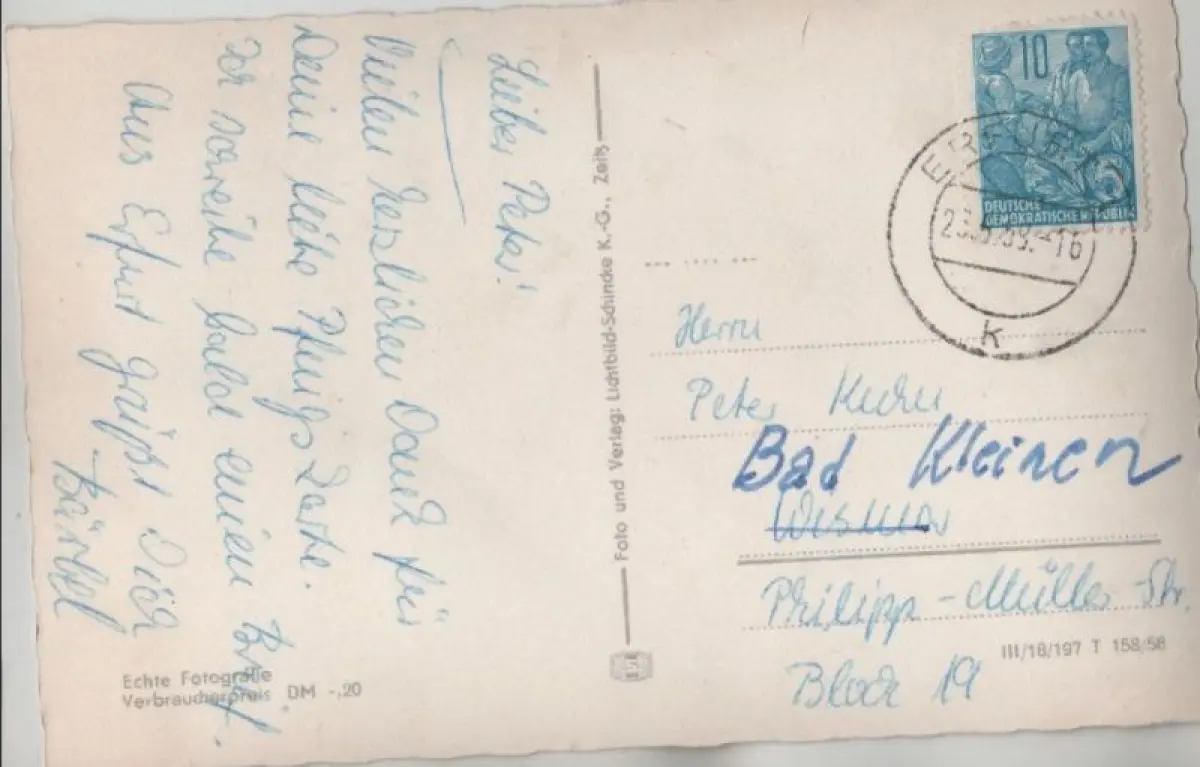 Lieber Peter!
Vielen herzlichen Dank für
Deine liebe Pfingstkarte.
Ich schreibe bald einen Brief.
Aus Erfurt grüßt Dich
Bärbel
Echte Fotografie
Verbraucherpreis DM -,20
Foto und Verlag: Lichtbild-Schincke K.-G., Zeitz
10
DEUTSCHE
DEMOKRATISCHE REPUBLIK
ERFURT
-16
K
Herrn
Peter
Bad Kleinen
Wismar
Philipp-Müller-Str.
Block 19
III/18/197 T 158/58